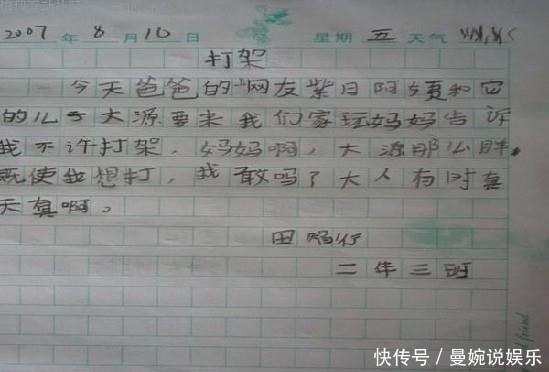 2007年8月10日 星期五 天气
打架
今天爸爸的"网友紫日阿姨和它
的儿子大源要来我们家玩妈妈告诉
我不许打架。妈妈啊,大源那么胖,
既使我想打,我敢吗?大人有时真
天真啊。
田
二年三班
快传号/曼婉说娱乐